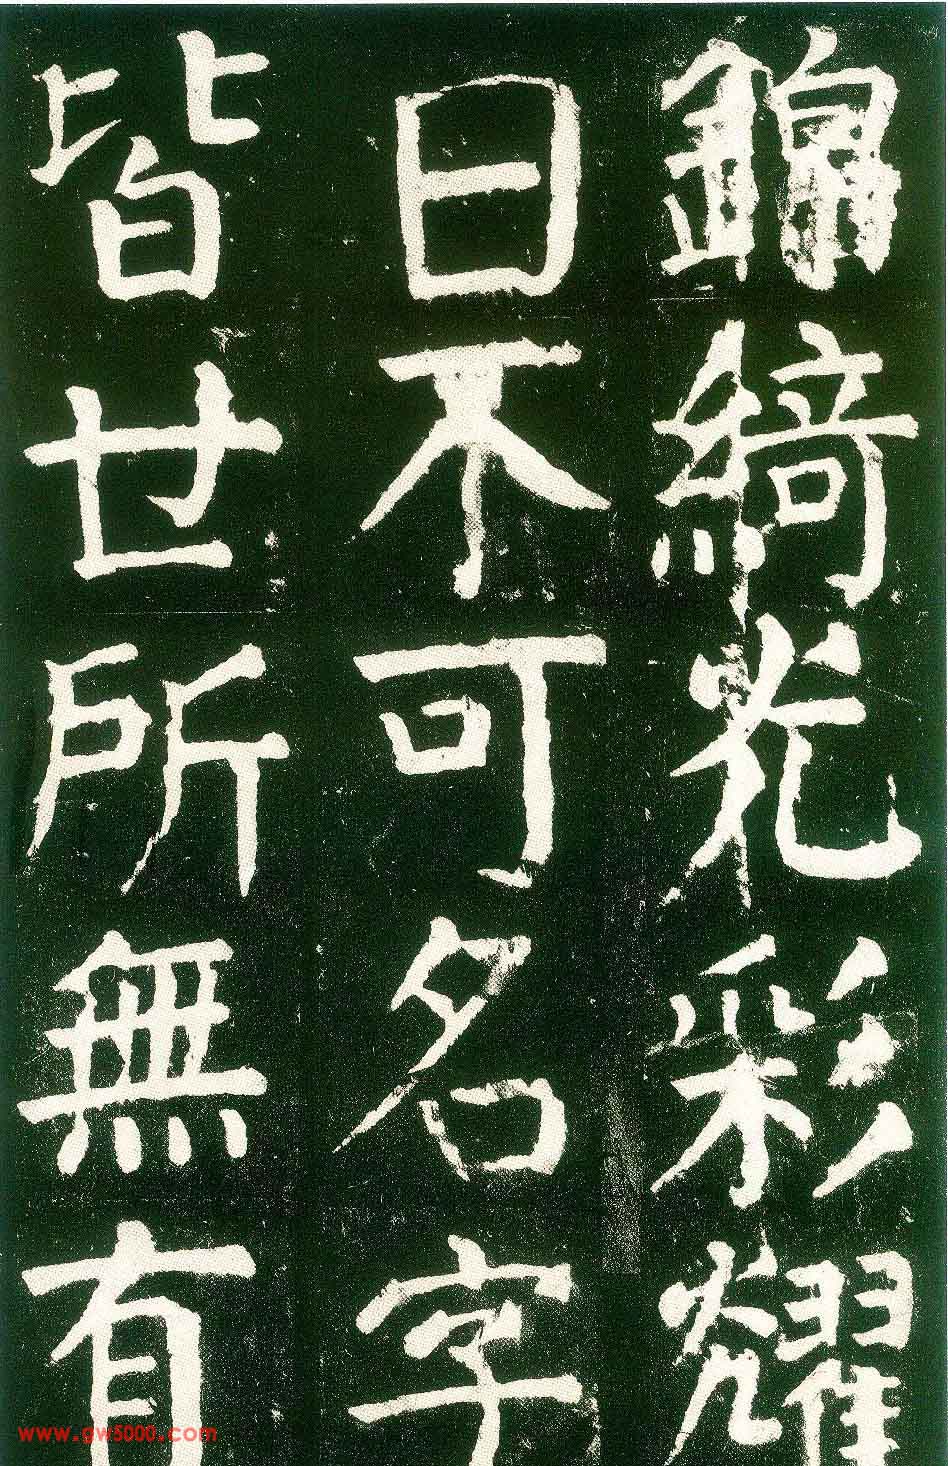 錦綺光彩耀
日不可名字
皆世所無有
www.gw5000.com